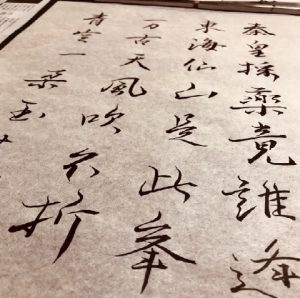 秦皇採藥竟難逢
東海仙山是此峯
万古天風吹不折
青空一朶玉